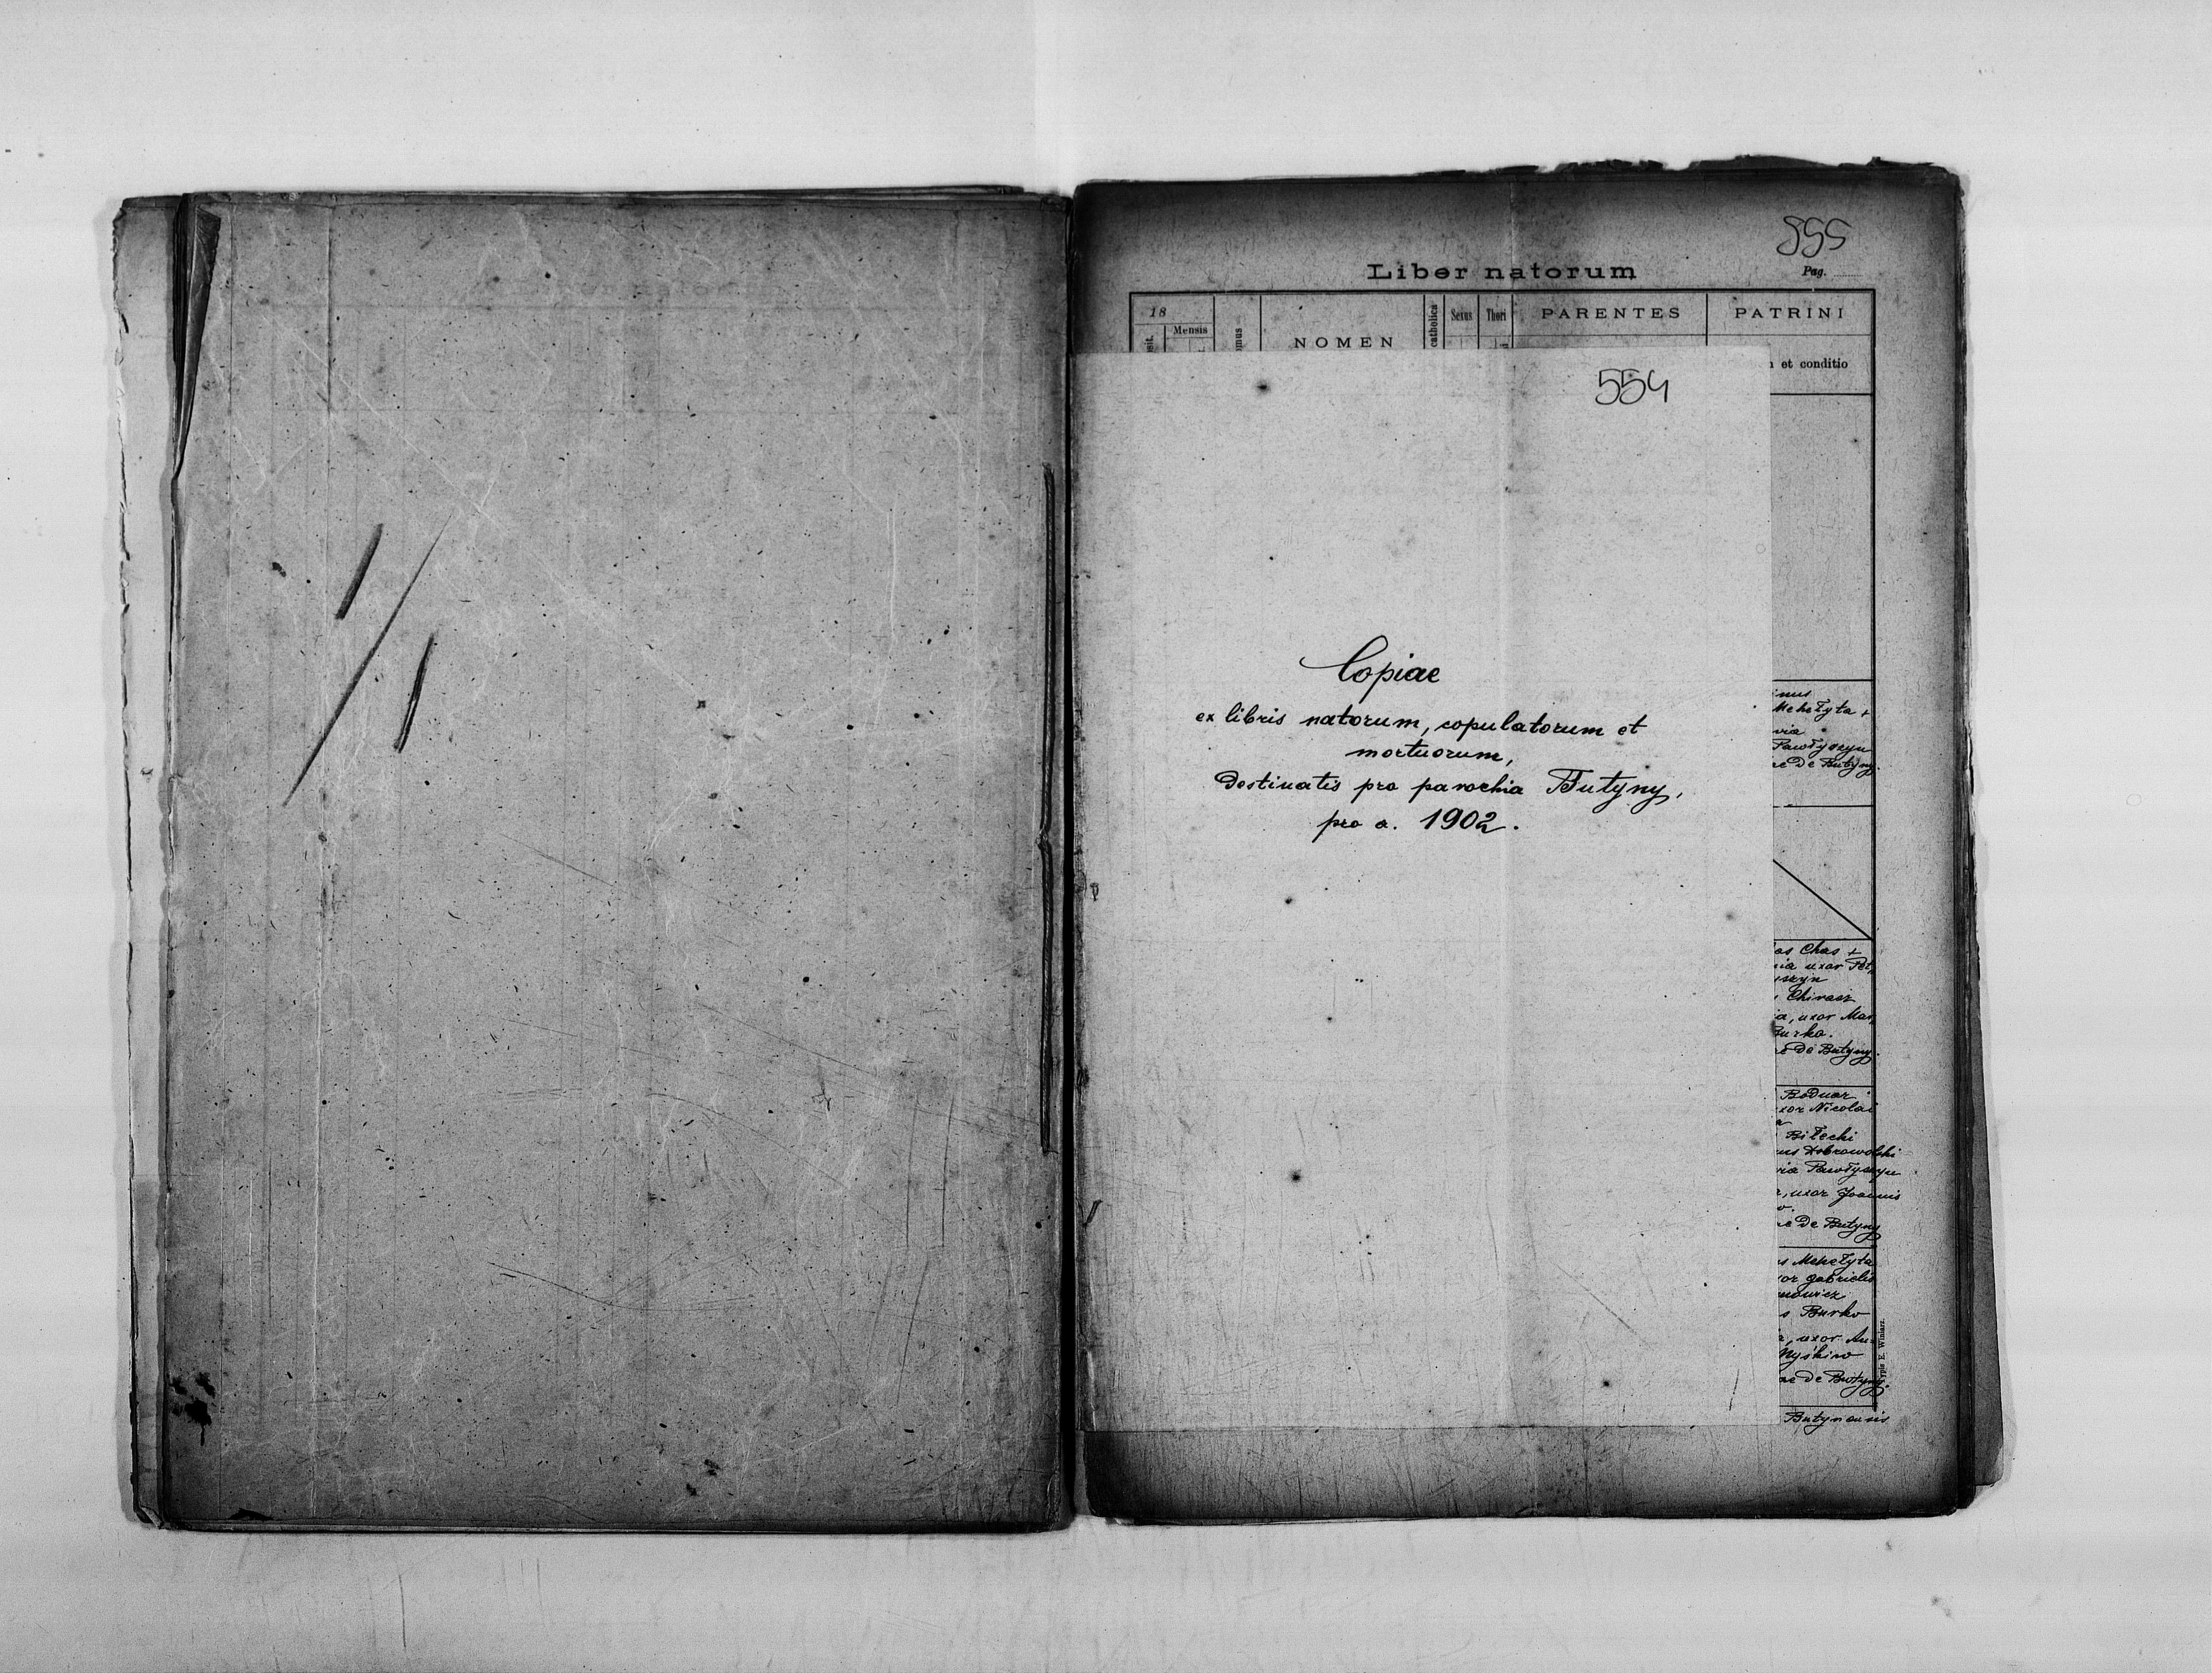 555
Liber natorum
Pag.
18
Mensis
NOMEN
catholica
Sexus
Thori
PARENTES
PATRINI
et conditio
554
Copiae
ex libris natorum, copulatorum et
mortuorum,
destinatis pro parochia Butyny,
pro a. 1902.
Mekełyta +
Pawłyszyn
de Butyny.
Chas +
uxor Pet,
Chirasz
uxor Mar,
de Butyny.
Bodnar
Nicolai
Biłecki
Dobrowolski
Pawłyszyn
uxor Joannis
de Butyny
Mekełyta
gabrielis
Burko
uxor An-
Myśkiw
de Butyny.
E. Winiarz.
Butynensis